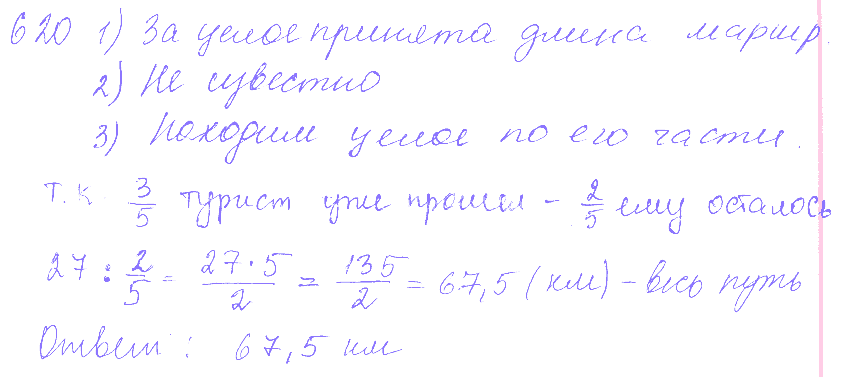 620 1) За целое принята длина маршр.
2) Не известно
3) Находим целое по его части.
т.к. 3/5 турист уже прошел – 2/5 ему осталось
27 : 2/5 = 27·5/2 = 135/2 = 67,5 (км) – весь путь
Ответ: 67,5 км